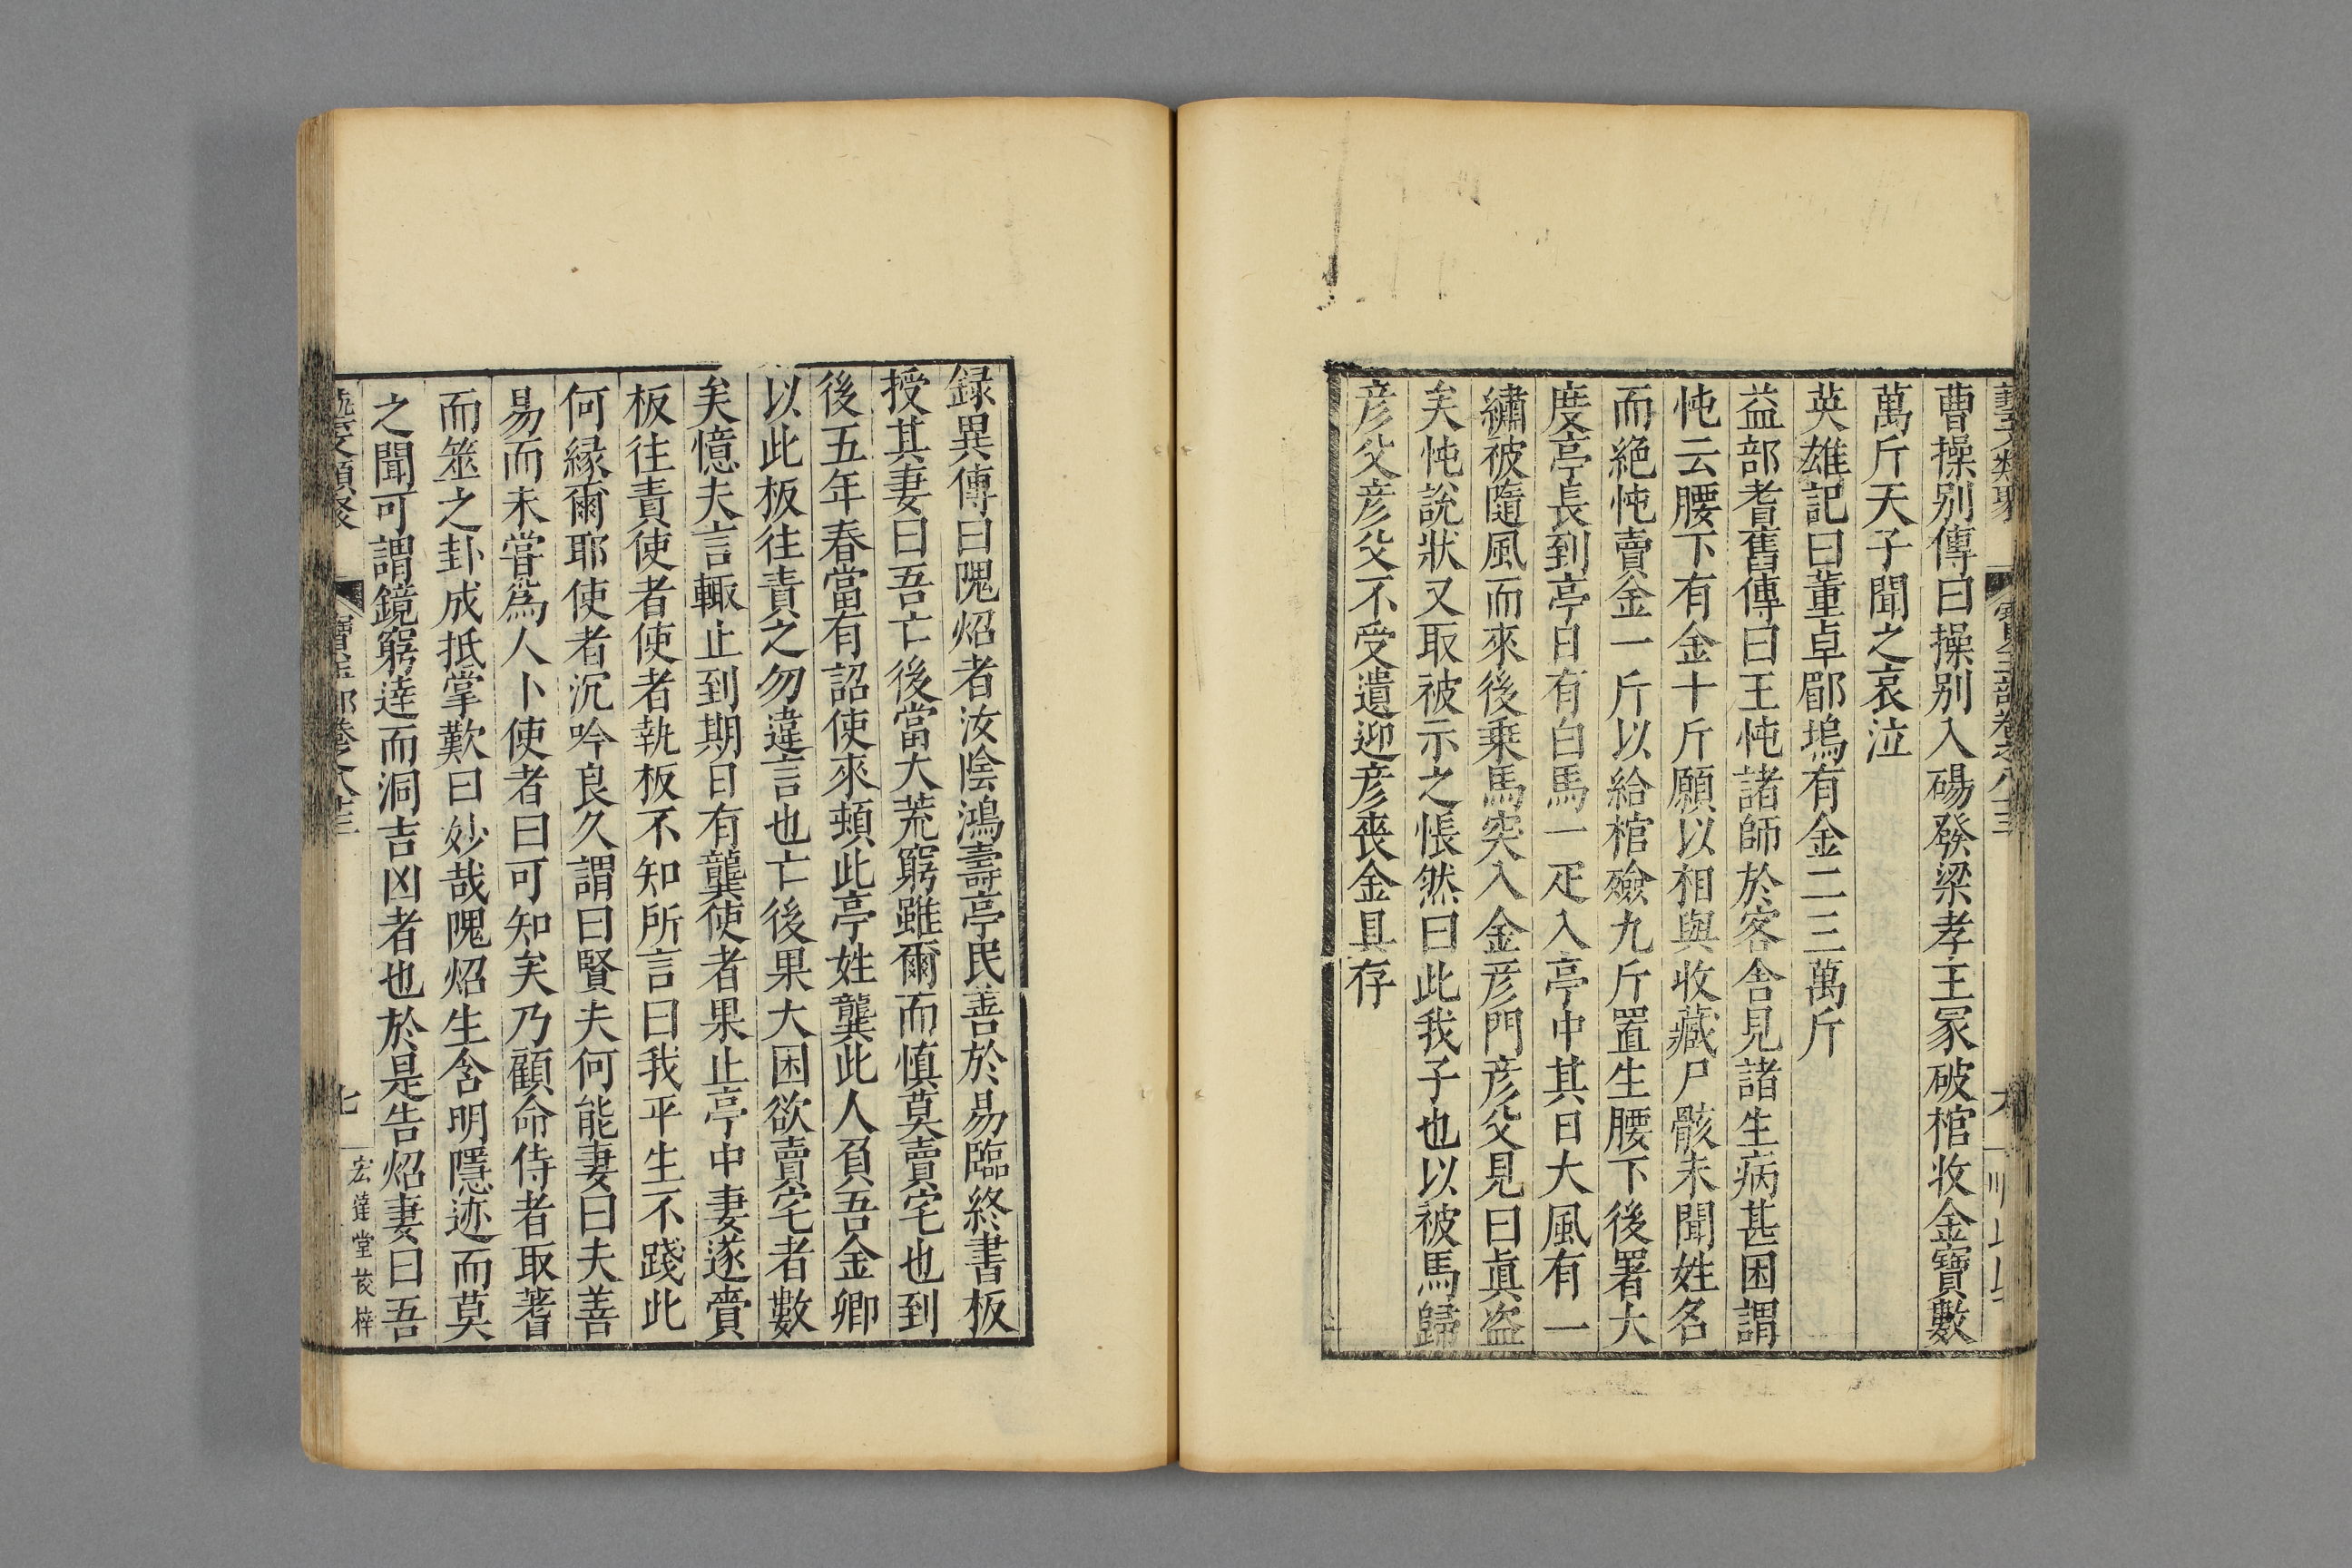 曹操别傳曰操别入碭發梁孝王冢破棺收金寶數
萬斤天子聞之哀泣
英雄記曰董卓郿塢有金二三萬斤
益部耆舊傳曰王忳諸師於客舍見諸生病甚困謂
忳云腰下有金十斤願以相與收藏尸骸未聞姓名
而絶忳賣金一斤以給棺殮九斤置生腰下後署大
度亭長到亭日有白馬一疋入亭中其日大風有一
繡被隨風而來後乗馬突入金彦門彦父見曰真盗
矣忳說狀又取被示之悵然曰此我子也以被馬歸
彦父彦父不受遺迎彦喪金具存
録異傳曰隗炤者汝陰鴻壽亭民善於易臨終書板
授其妻曰吾亡後當大荒窮雖爾而慎莫賣宅也到
後五年春當有詔使來頓此亭姓龔此人負吾金卿
以此板往責之勿違言也亡後果大困欲賣宅者數
矣憶夫言輙止到期日有龔使者果止亭中妻遂賫
板往責使者使者執板不知所言曰我平生不踐此
何縁爾耶使者沉吟良久謂曰賢夫何能妻曰夫善
易而未甞爲人卜使者曰可知矣乃顧命侍者取蓍
而筮之卦成抵掌歎曰妙哉隗炤生含明隱迹而莫
之聞可謂鏡窮達而洞吉凶者也於是告炤妻曰吾
七
宏達堂茭梓